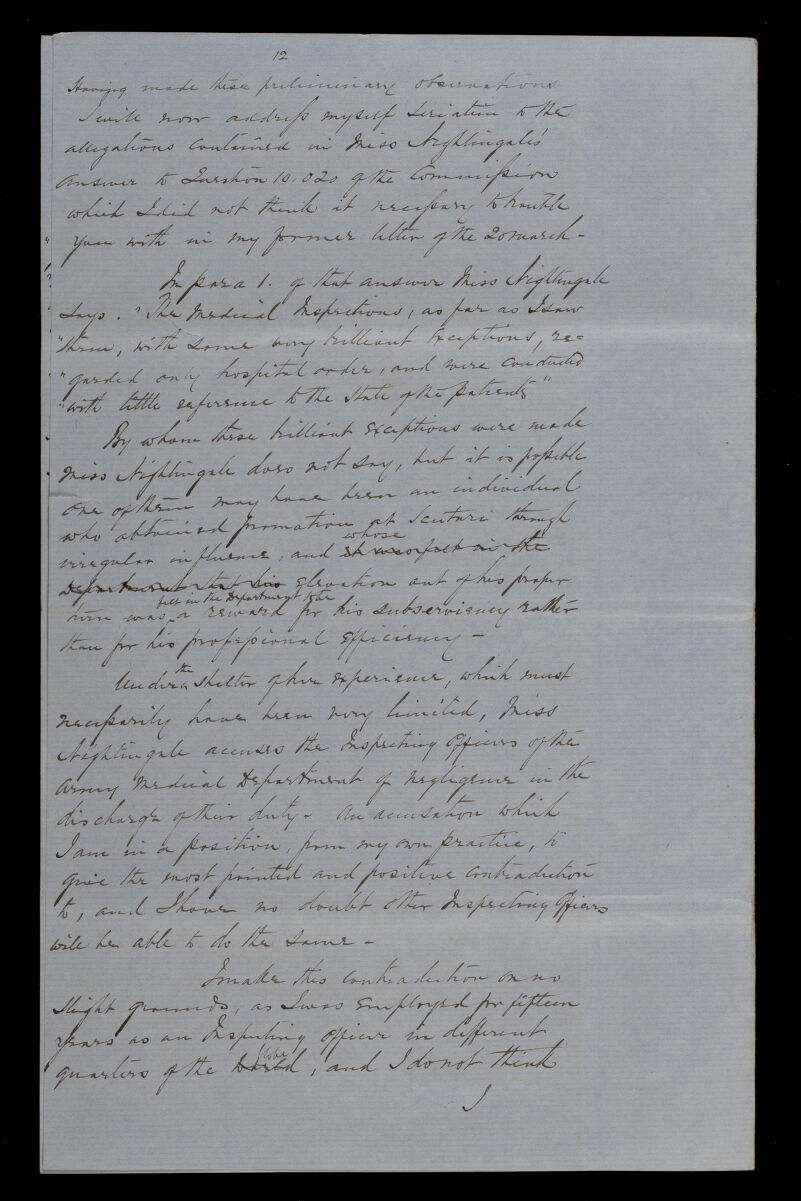 12
Having made these preliminary observations
I will now address myself seriatim to the
allegations contained in Miss Nightingale's
answer to Question 10.020 of the Commission
which I did not think it necessary to trouble
you with in my former letter of the 20 March -
In para 1. of that answer Miss Nightingale
says. "The Medical Inspections, as far as I saw
"them, with some very brilliant exceptions, re=
"garded only hospital order, and were conducted
"with little reference to the state of the patients"
By whom these brilliant exceptions were made
Miss Nightingale does not say, but it is possible
one of them may have been an individual
who obtained promotion at Scutari through
whose
irregular influence, and it was felt in the
Department that his elevation out of his proper
felt in the Department to be
turn was a reward for his subserviency rather
than for his professional efficiency -
Under the shelter of her experience, which must
necessarily have been very limited, Miss
Nightingale accuses the Inspecting Officers of the
Army Medical Department of negligence in the
discharge of their duty - an accusation which
I am in a position, from my own practice, to
give the most pointed and positive contradiction
to, and I have no doubt other Inspecting Officers
will be able to do the same -
I make this contradiction on no
slight grounds, as I was employed for fifteen
years as an Inspecting officer in different
globe
quarters of the world, and I do not think
I